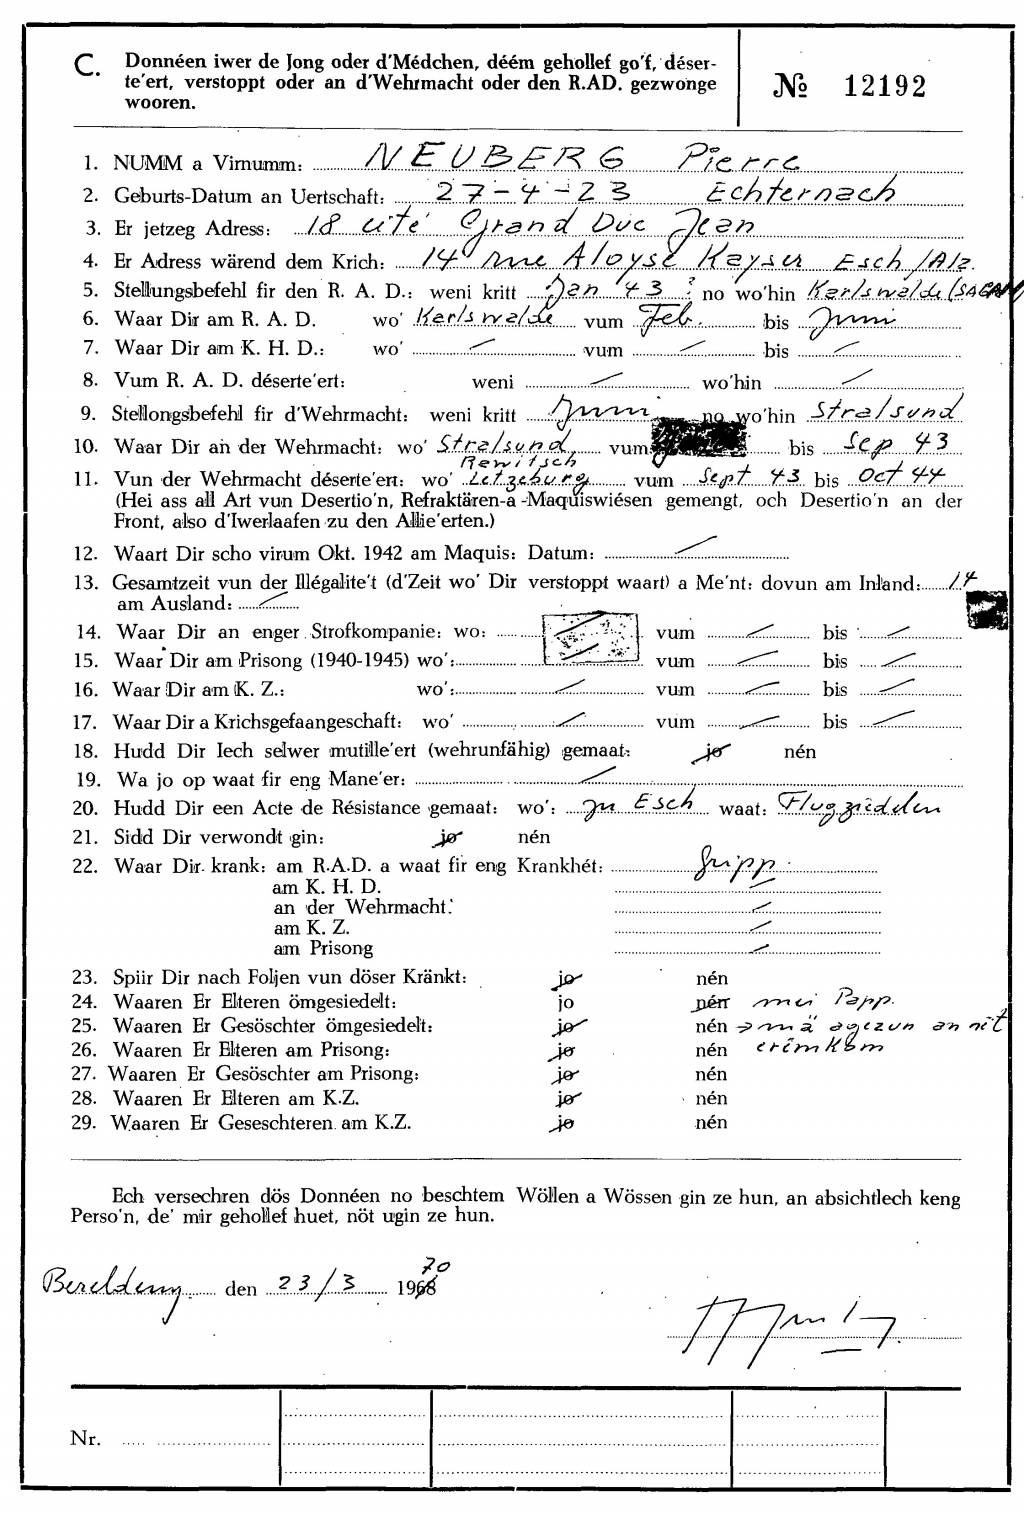 C. Donnéen iwer de Jong oder d'Médchen, déém gehollef go'f, déser-
te'ert, verstoppt oder an d'Wehrmacht oder den R.AD. gezwonge
wooren.
№ 12192
1. NUMM a Virnumm: NEUBERG Pierre
2. Geburts-Datum an Uertschaft: 27-4-23 Echternach
3. Er jetzeg Adress: 18 cité Grand Duc Jean
4. Er Adress wärend dem Krich: 14 rue Aloyse Kayser Esch/Alz.
5. Stellungsbefehl fir den R. A. D.: weni kritt Jan 43 ? no wo'hin Karlswalde (SAGAN)
6. Waar Dir am R. A. D. wo' Karlswalde vum Feb. bis Juni
7. Waar Dir am K. H. D.: wo' / vum / bis /
8. Vum R. A. D. déserte'ert: weni / wo'hin /
9. Stellongsbefehl fir d'Wehrmacht: weni kritt Juni no wo'hin Stralsund
10. Waar Dir an der Wehrmacht: wo' Stralsund vum bis Sep 43
Rewitsch
11. Vun der Wehrmacht déserte'ert: wo' Letzeburg vum Sept 43 bis Oct 44
(Hei ass all Art vun Desertio'n, Refraktären-a-Maquiswiésen gemengt, och Desertio'n an der
Front, also d'Iwerlaafen zu den Allie'erten.)
12. Waart Dir scho virum Okt. 1942 am Maquis: Datum: /
13. Gesamtzeit vun der Illégalite't (d'Zeit wo' Dir verstoppt waart) a Me'nt: dovun am Inland: 14
am Ausland: /
14. Waar Dir an enger Strofkompanie: wo: / vum / bis /
15. Waar Dir am Prisong (1940-1945) wo': / vum / bis /
16. Waar Dir am K. Z.: wo': / vum / bis /
17. Waar Dir a Krichsgefaangeschaft: wo' / vum / bis /
18. Hudd Dir Iech selwer mutille'ert (wehrunfähig) gemaat: jo nén
19. Wa jo op waat fir eng Mane'er: /
20. Hudd Dir een Acte de Résistance gemaat: wo': zu Esch waat: Flugziedelen
21. Sidd Dir verwondt gin: jo nén
22. Waar Dir krank: am R.A.D. a waat fir eng Krankhét: Gripp
am K. H. D. /
an der Wehrmacht: /
am K. Z. /
am Prisong /
23. Spiir Dir nach Foljen vun döser Kränkt: jo nén
24. Waaren Er Elteren ömgesiedelt: jo nén mei Papp.
25. Waaren Er Gesöschter ömgesiedelt: jo nén → mä agezun an nit
26. Waaren Er Elteren am Prisong: jo nén erëmkom
27. Waaren Er Gesöschter am Prisong: jo nén
28. Waaren Er Elteren am K.Z. jo nén
29. Waaren Er Geseschteren am K.Z. jo nén
Ech versechren dös Donnéen no beschtem Wöllen a Wössen gin ze hun, an absichtlech keng
Perso'n, de' mir gehollef huet, nöt ugin ze hun.
70
Bereldeng den 23/3 1968
Nr.